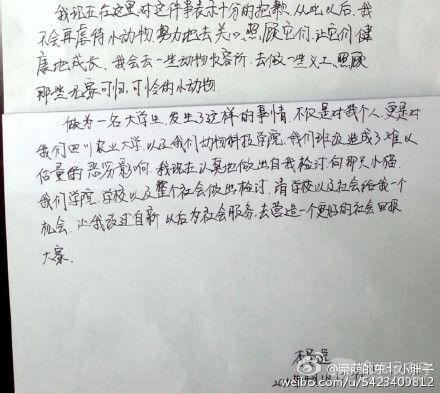 我现在在这里对这件事表示十分的抱歉,从此以后,我
不会再虐待小动物,努力地去关心,照顾它们,让它们健
康地成长,我会去一些动物收容所,去做一些义工,照顾
那些无家可归,可怜的小动物.
做为一名大学生,发生了这样的事情,不仅是对我个人,更是对
我们四川农业大学,以及我们动物科技学院,我们班级造成了难以
估量的恶劣影响,我现在认真地做出自我检讨,向那只小猫,
我们学院,学校以及整个社会做出检讨,请学校以及社会给我一个
机会,让我改过自新,以后为社会服务,去营造一个更好的社会回报
大家.
李
20
@荣荫的东北小胖子
weibo.com/u/5423409812